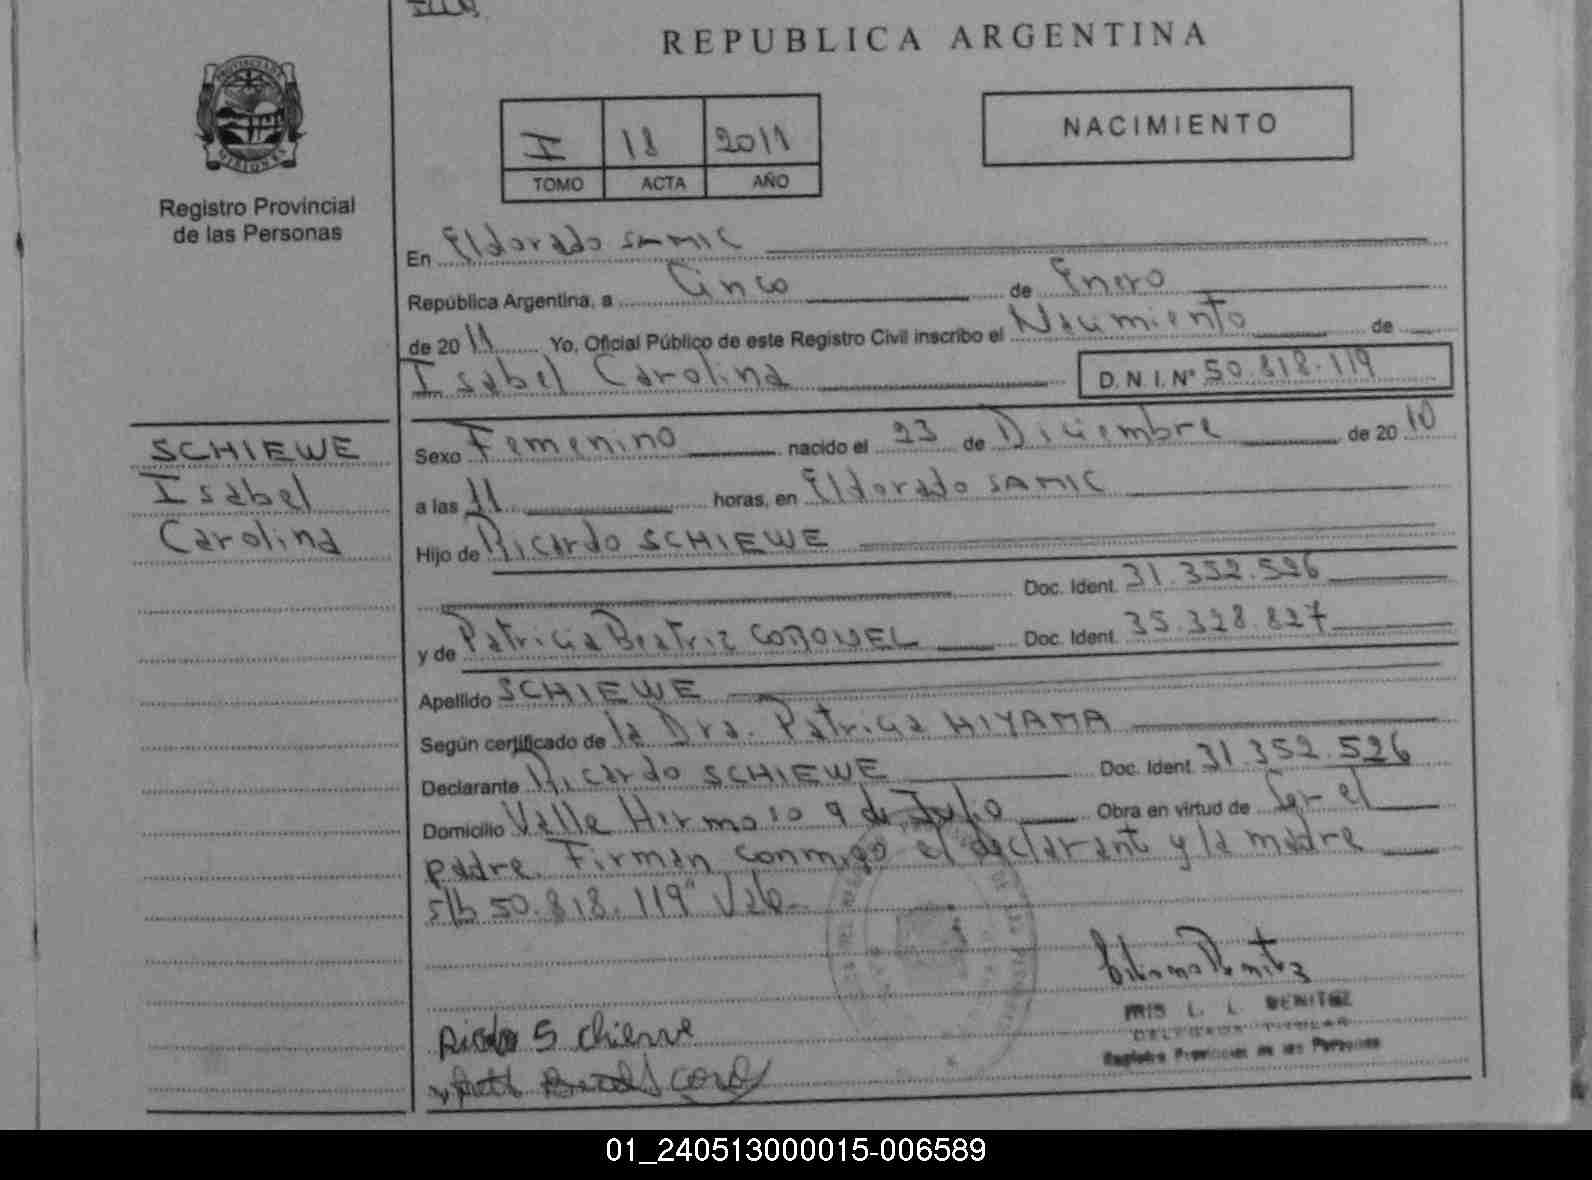 REPUBLICA ARGENTINA
PROVINCIA DE
MISIONES
Registro Provincial
de las Personas
I 18 2011
TOMO ACTA AÑO
NACIMIENTO
En Eldorado SAMIC
República Argentina, a Cinco de Enero
de 20 11 Yo, Oficial Público de este Registro Civil inscribo el Nacimiento de
Isabel Carolina D. N. I. Nº 50.818.119
SCHIEWE
Isabel
Carolina
Sexo Femenino nacido el 23 de Diciembre de 20 10
a las 11 horas, en Eldorado SAMIC
Hijo de Ricardo SCHIEWE
Doc. Ident. 31.352.526
y de Patricia Beatriz CORONEL Doc. Ident. 35.328.827
Apellido SCHIEWE
Según certificado de la Dra. Patricia HIYAMA
Declarante Ricardo SCHIEWE Doc. Ident. 31.352.526
Domicilio Valle Hermoso 9 de Julio Obra en virtud de Ser el
padre. Firman conmigo el declarante y la madre
s/b 50.818.119" Vale.
IRIS L. L. BENITEZ
DELEGADA TITULAR
Registro Provincial de las Personas
Ricardo Schiewe
01_240513000015-006589